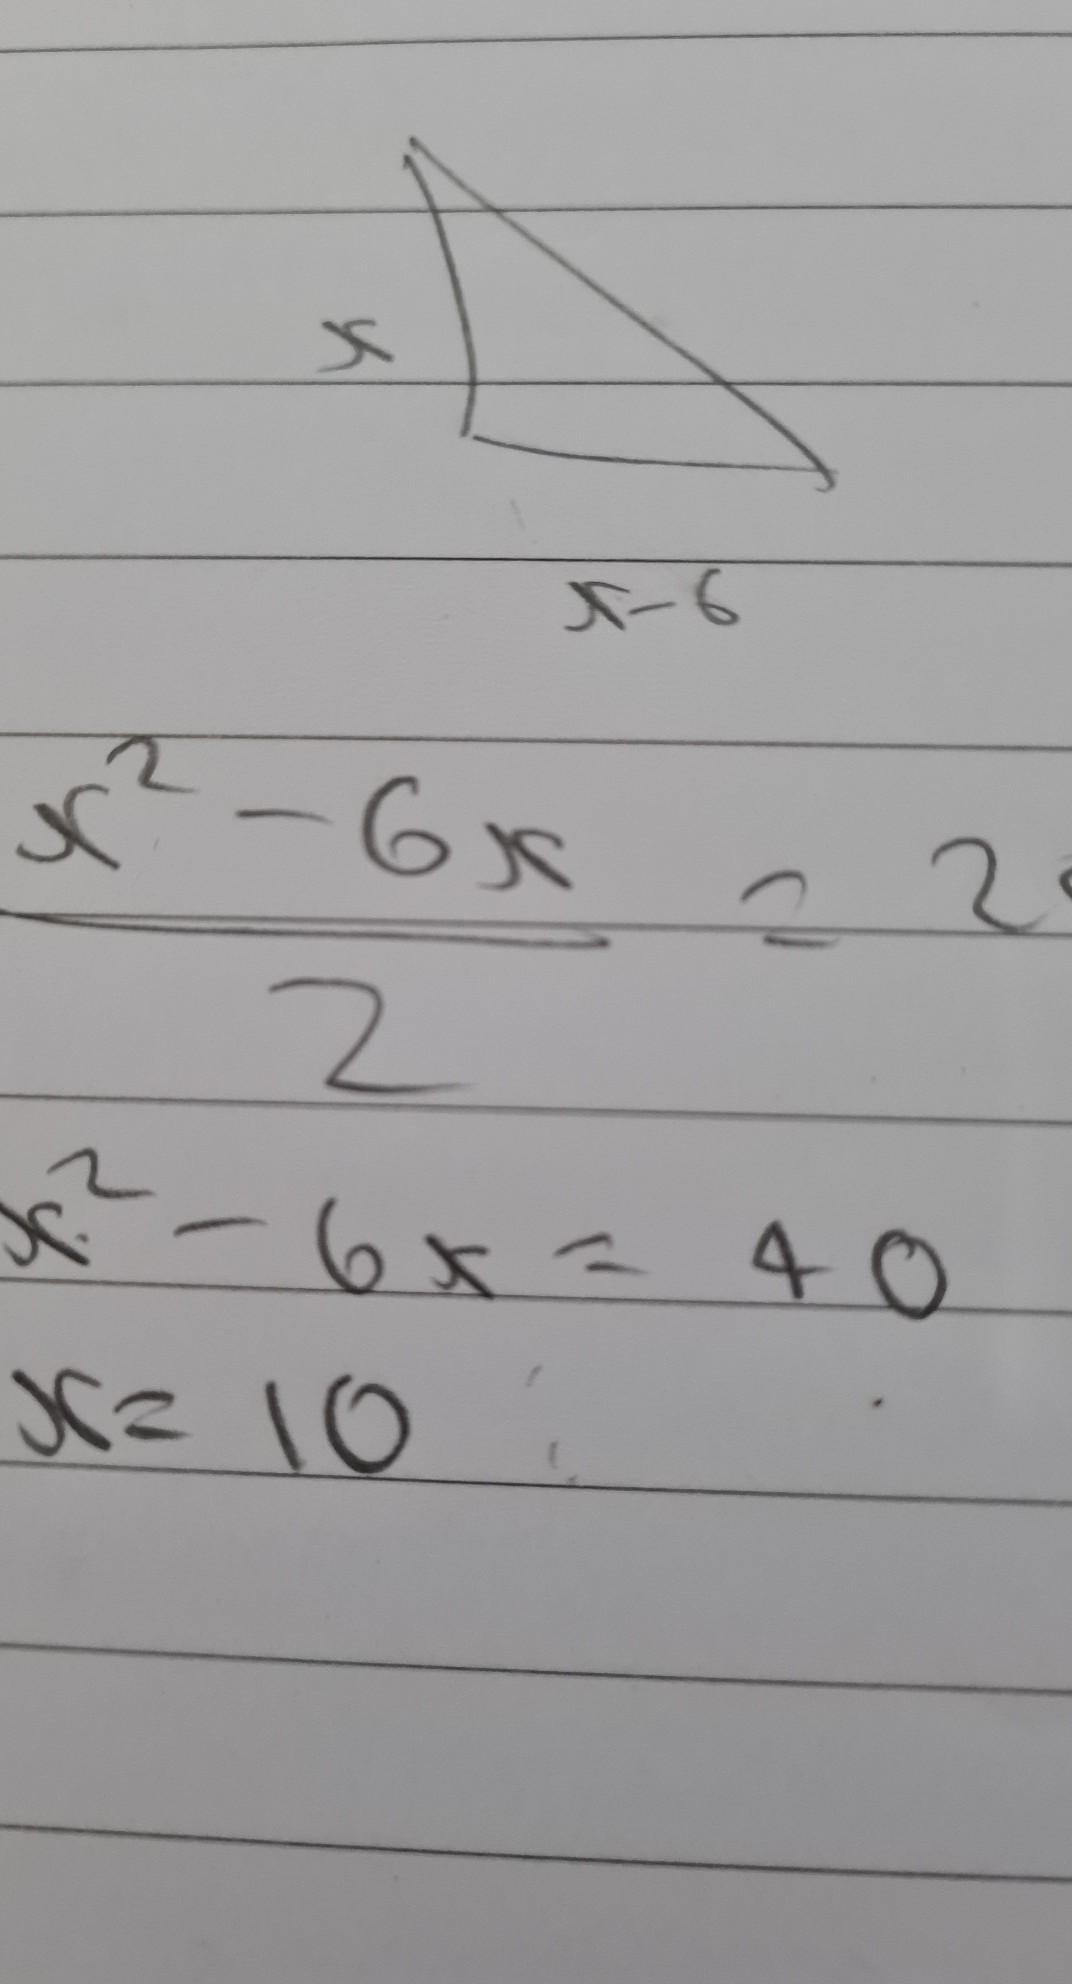 x
x-6
x² - 6x = 2
2
x² - 6x = 40
x = 10